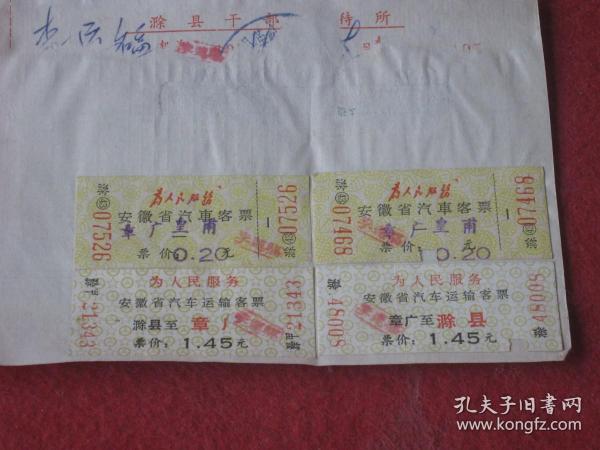 滁县干部
待所
为人民服务
安徽省汽車客票
章广皇甫
票价: 0.20 元
07526
07526
为人民服务
安徽省汽車客票
章广皇甫
票价: 0.20
07468
07468
为人民服务
安徽省汽车运输客票
滁县至章广
票价: 1.45元
21343
为人民服务
安徽省汽车运输客票
章广至滁县
票价: 1.45元
48008
48008
孔夫子旧书网
www.kongfz.com